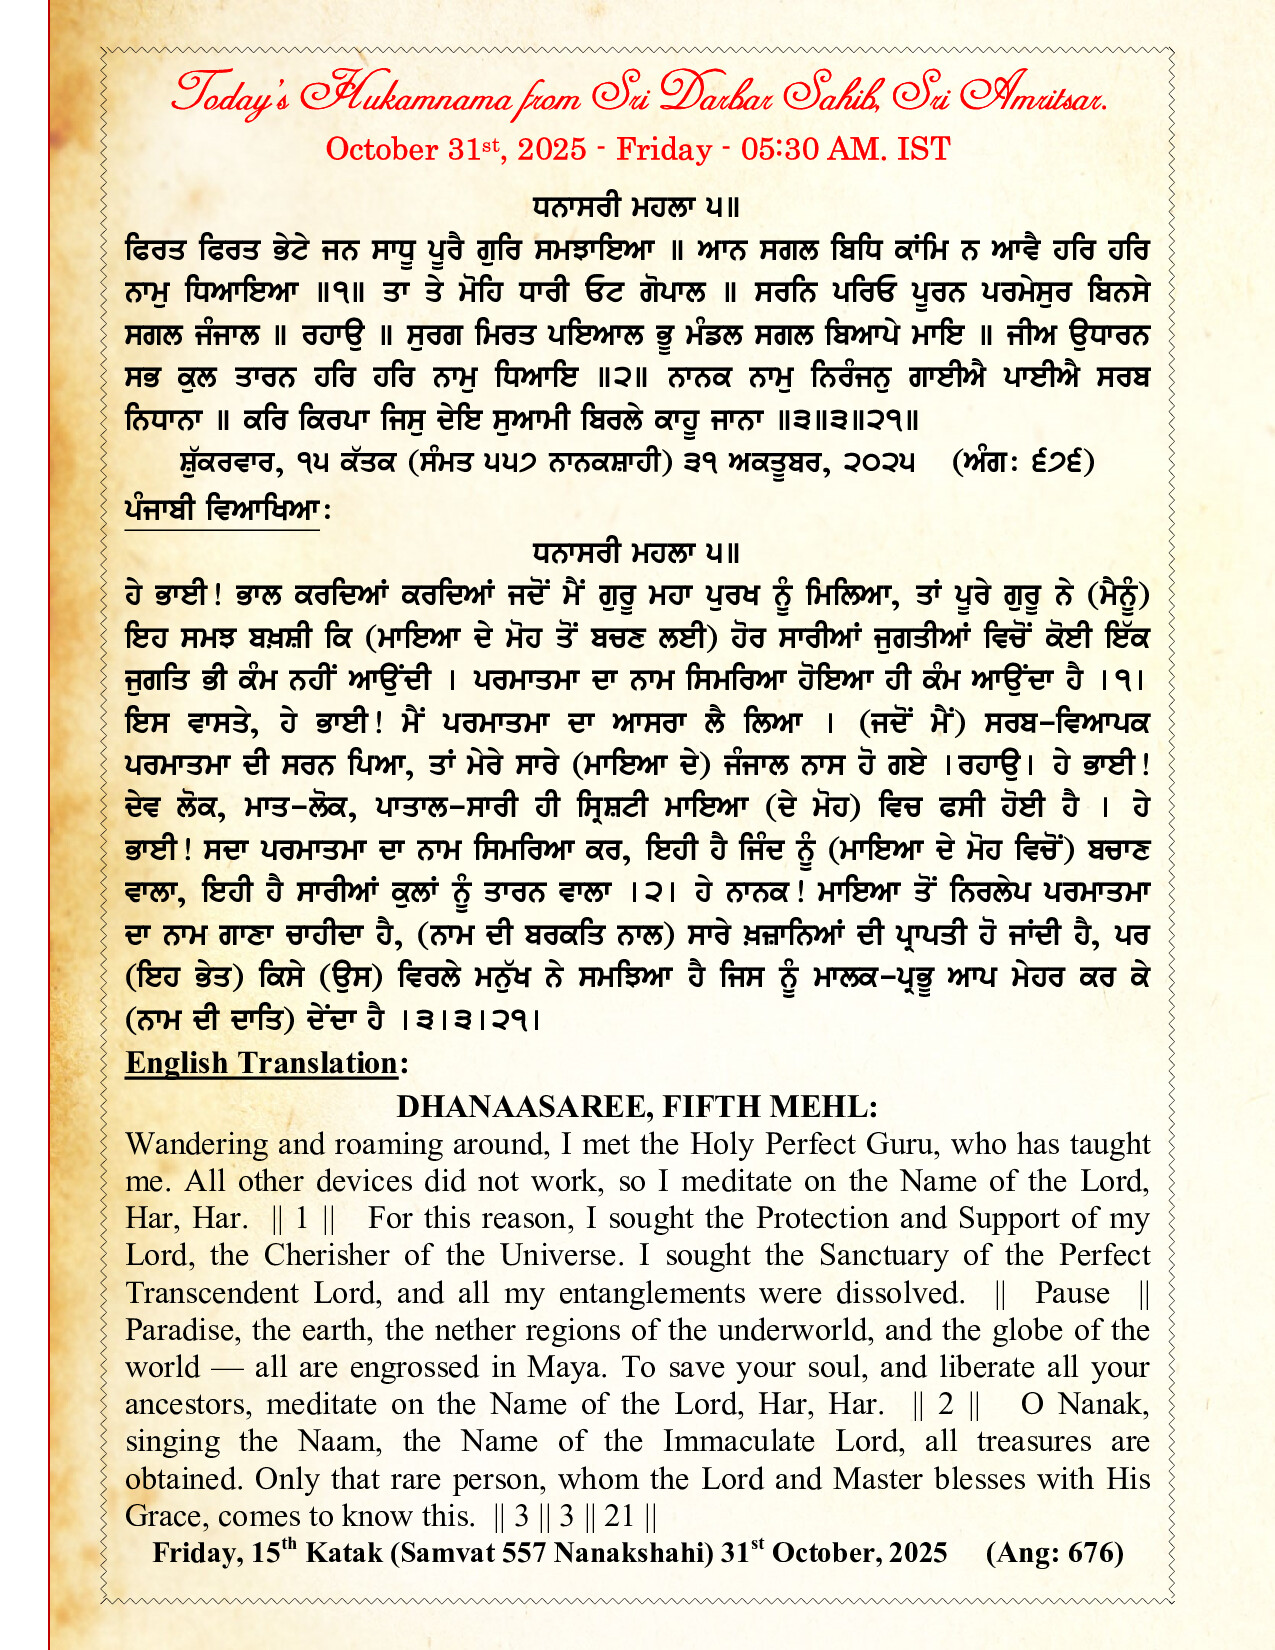 Today's Hukamnama from Sri Darbar Sahib, Sri Amritsar.
October 31st, 2025 - Friday - 05:30 AM. IST
ਧਨਾਸਰੀ ਮਹਲਾ ੫॥
ਫਿਰਤ ਫਿਰਤ ਭੇਟੇ ਜਨ ਸਾਧੂ ਪੂਰੈ ਗੁਰਿ ਸਮਝਾਇਆ ॥ ਆਨ ਸਗਲ ਬਿਧਿ ਕਾਂਮਿ ਨ ਆਵੈ ਹਰਿ ਹਰਿ
ਨਾਮੁ ਧਿਆਇਆ ॥੧॥ ਤਾ ਤੇ ਮੋਹਿ ਧਾਰੀ ਓਟ ਗੋਪਾਲ ॥ ਸਰਨਿ ਪਰਿਓ ਪੂਰਨ ਪਰਮੇਸੁਰ ਬਿਨਸੇ
ਸਗਲ ਜੰਜਾਲ ॥ ਰਹਾਉ ॥ ਸੁਰਗ ਮਿਰਤ ਪਇਆਲ ਭੂ ਮੰਡਲ ਸਗਲ ਬਿਆਪੇ ਮਾਇ ॥ ਜੀਅ ਉਧਾਰਨ
ਸਭ ਕੁਲ ਤਾਰਨ ਹਰਿ ਹਰਿ ਨਾਮੁ ਧਿਆਇ ॥੨॥ ਨਾਨਕ ਨਾਮੁ ਨਿਰੰਜਨੁ ਗਾਈਐ ਪਾਈਐ ਸਰਬ
ਨਿਧਾਨਾ ॥ ਕਰਿ ਕਿਰਪਾ ਜਿਸੁ ਦੇਇ ਸੁਆਮੀ ਬਿਰਲੇ ਕਾਹੂ ਜਾਨਾ ॥੩॥੩॥੨੧॥
ਸ਼ੁੱਕਰਵਾਰ, ੧੫ ਕੱਤਕ (ਸੰਮਤ ੫੫੭ ਨਾਨਕਸ਼ਾਹੀ) ੩੧ ਅਕਤੂਬਰ, ੨੦੨੫ (ਅੰਗ: ੬੭੬)
ਪੰਜਾਬੀ ਵਿਆਖਿਆ:
ਧਨਾਸਰੀ ਮਹਲਾ ੫॥
ਹੇ ਭਾਈ! ਭਾਲ ਕਰਦਿਆਂ ਕਰਦਿਆਂ ਜਦੋਂ ਮੈਂ ਗੁਰੂ ਮਹਾ ਪੁਰਖ ਨੂੰ ਮਿਲਿਆ, ਤਾਂ ਪੂਰੇ ਗੁਰੂ ਨੇ (ਮੈਨੂੰ)
ਇਹ ਸਮਝ ਬਖ਼ਸ਼ੀ ਕਿ (ਮਾਇਆ ਦੇ ਮੋਹ ਤੋਂ ਬਚਣ ਲਈ) ਹੋਰ ਸਾਰੀਆਂ ਜੁਗਤੀਆਂ ਵਿਚੋਂ ਕੋਈ ਇੱਕ
ਜੁਗਤਿ ਭੀ ਕੰਮ ਨਹੀਂ ਆਉਂਦੀ । ਪਰਮਾਤਮਾ ਦਾ ਨਾਮ ਸਿਮਰਿਆ ਹੋਇਆ ਹੀ ਕੰਮ ਆਉਂਦਾ ਹੈ ।੧।
ਇਸ ਵਾਸਤੇ, ਹੇ ਭਾਈ! ਮੈਂ ਪਰਮਾਤਮਾ ਦਾ ਆਸਰਾ ਲੈ ਲਿਆ । (ਜਦੋਂ ਮੈਂ) ਸਰਬ-ਵਿਆਪਕ
ਪਰਮਾਤਮਾ ਦੀ ਸਰਨ ਪਿਆ, ਤਾਂ ਮੇਰੇ ਸਾਰੇ (ਮਾਇਆ ਦੇ) ਜੰਜਾਲ ਨਾਸ ਹੋ ਗਏ ।ਰਹਾਉ। ਹੇ ਭਾਈ!
ਦੇਵ ਲੋਕ, ਮਾਤ-ਲੋਕ, ਪਾਤਾਲ-ਸਾਰੀ ਹੀ ਸ੍ਰਿਸ਼ਟੀ ਮਾਇਆ (ਦੇ ਮੋਹ) ਵਿਚ ਫਸੀ ਹੋਈ ਹੈ । ਹੇ
ਭਾਈ! ਸਦਾ ਪਰਮਾਤਮਾ ਦਾ ਨਾਮ ਸਿਮਰਿਆ ਕਰ, ਇਹੀ ਹੈ ਜਿੰਦ ਨੂੰ (ਮਾਇਆ ਦੇ ਮੋਹ ਵਿਚੋਂ) ਬਚਾਣ
ਵਾਲਾ, ਇਹੀ ਹੈ ਸਾਰੀਆਂ ਕੁਲਾਂ ਨੂੰ ਤਾਰਨ ਵਾਲਾ ।੨। ਹੇ ਨਾਨਕ! ਮਾਇਆ ਤੋਂ ਨਿਰਲੇਪ ਪਰਮਾਤਮਾ
ਦਾ ਨਾਮ ਗਾਣਾ ਚਾਹੀਦਾ ਹੈ, (ਨਾਮ ਦੀ ਬਰਕਤਿ ਨਾਲ) ਸਾਰੇ ਖ਼ਜ਼ਾਨਿਆਂ ਦੀ ਪ੍ਰਾਪਤੀ ਹੋ ਜਾਂਦੀ ਹੈ, ਪਰ
(ਇਹ ਭੇਤ) ਕਿਸੇ (ਉਸ) ਵਿਰਲੇ ਮਨੁੱਖ ਨੇ ਸਮਝਿਆ ਹੈ ਜਿਸ ਨੂੰ ਮਾਲਕ-ਪ੍ਰਭੂ ਆਪ ਮੇਹਰ ਕਰ ਕੇ
(ਨਾਮ ਦੀ ਦਾਤਿ) ਦੇਂਦਾ ਹੈ ।੩।੩।੨੧।
English Translation:
DHANAASAREE, FIFTH MEHL:
Wandering and roaming around, I met the Holy Perfect Guru, who has taught
me. All other devices did not work, so I meditate on the Name of the Lord,
Har, Har. || 1 || For this reason, I sought the Protection and Support of my
Lord, the Cherisher of the Universe. I sought the Sanctuary of the Perfect
Transcendent Lord, and all my entanglements were dissolved. || Pause ||
Paradise, the earth, the nether regions of the underworld, and the globe of the
world — all are engrossed in Maya. To save your soul, and liberate all your
ancestors, meditate on the Name of the Lord, Har, Har. || 2 || O Nanak,
singing the Naam, the Name of the Immaculate Lord, all treasures are
obtained. Only that rare person, whom the Lord and Master blesses with His
Grace, comes to know this. || 3 || 3 || 21 ||
Friday, 15th Katak (Samvat 557 Nanakshahi) 31st October, 2025 (Ang: 676)